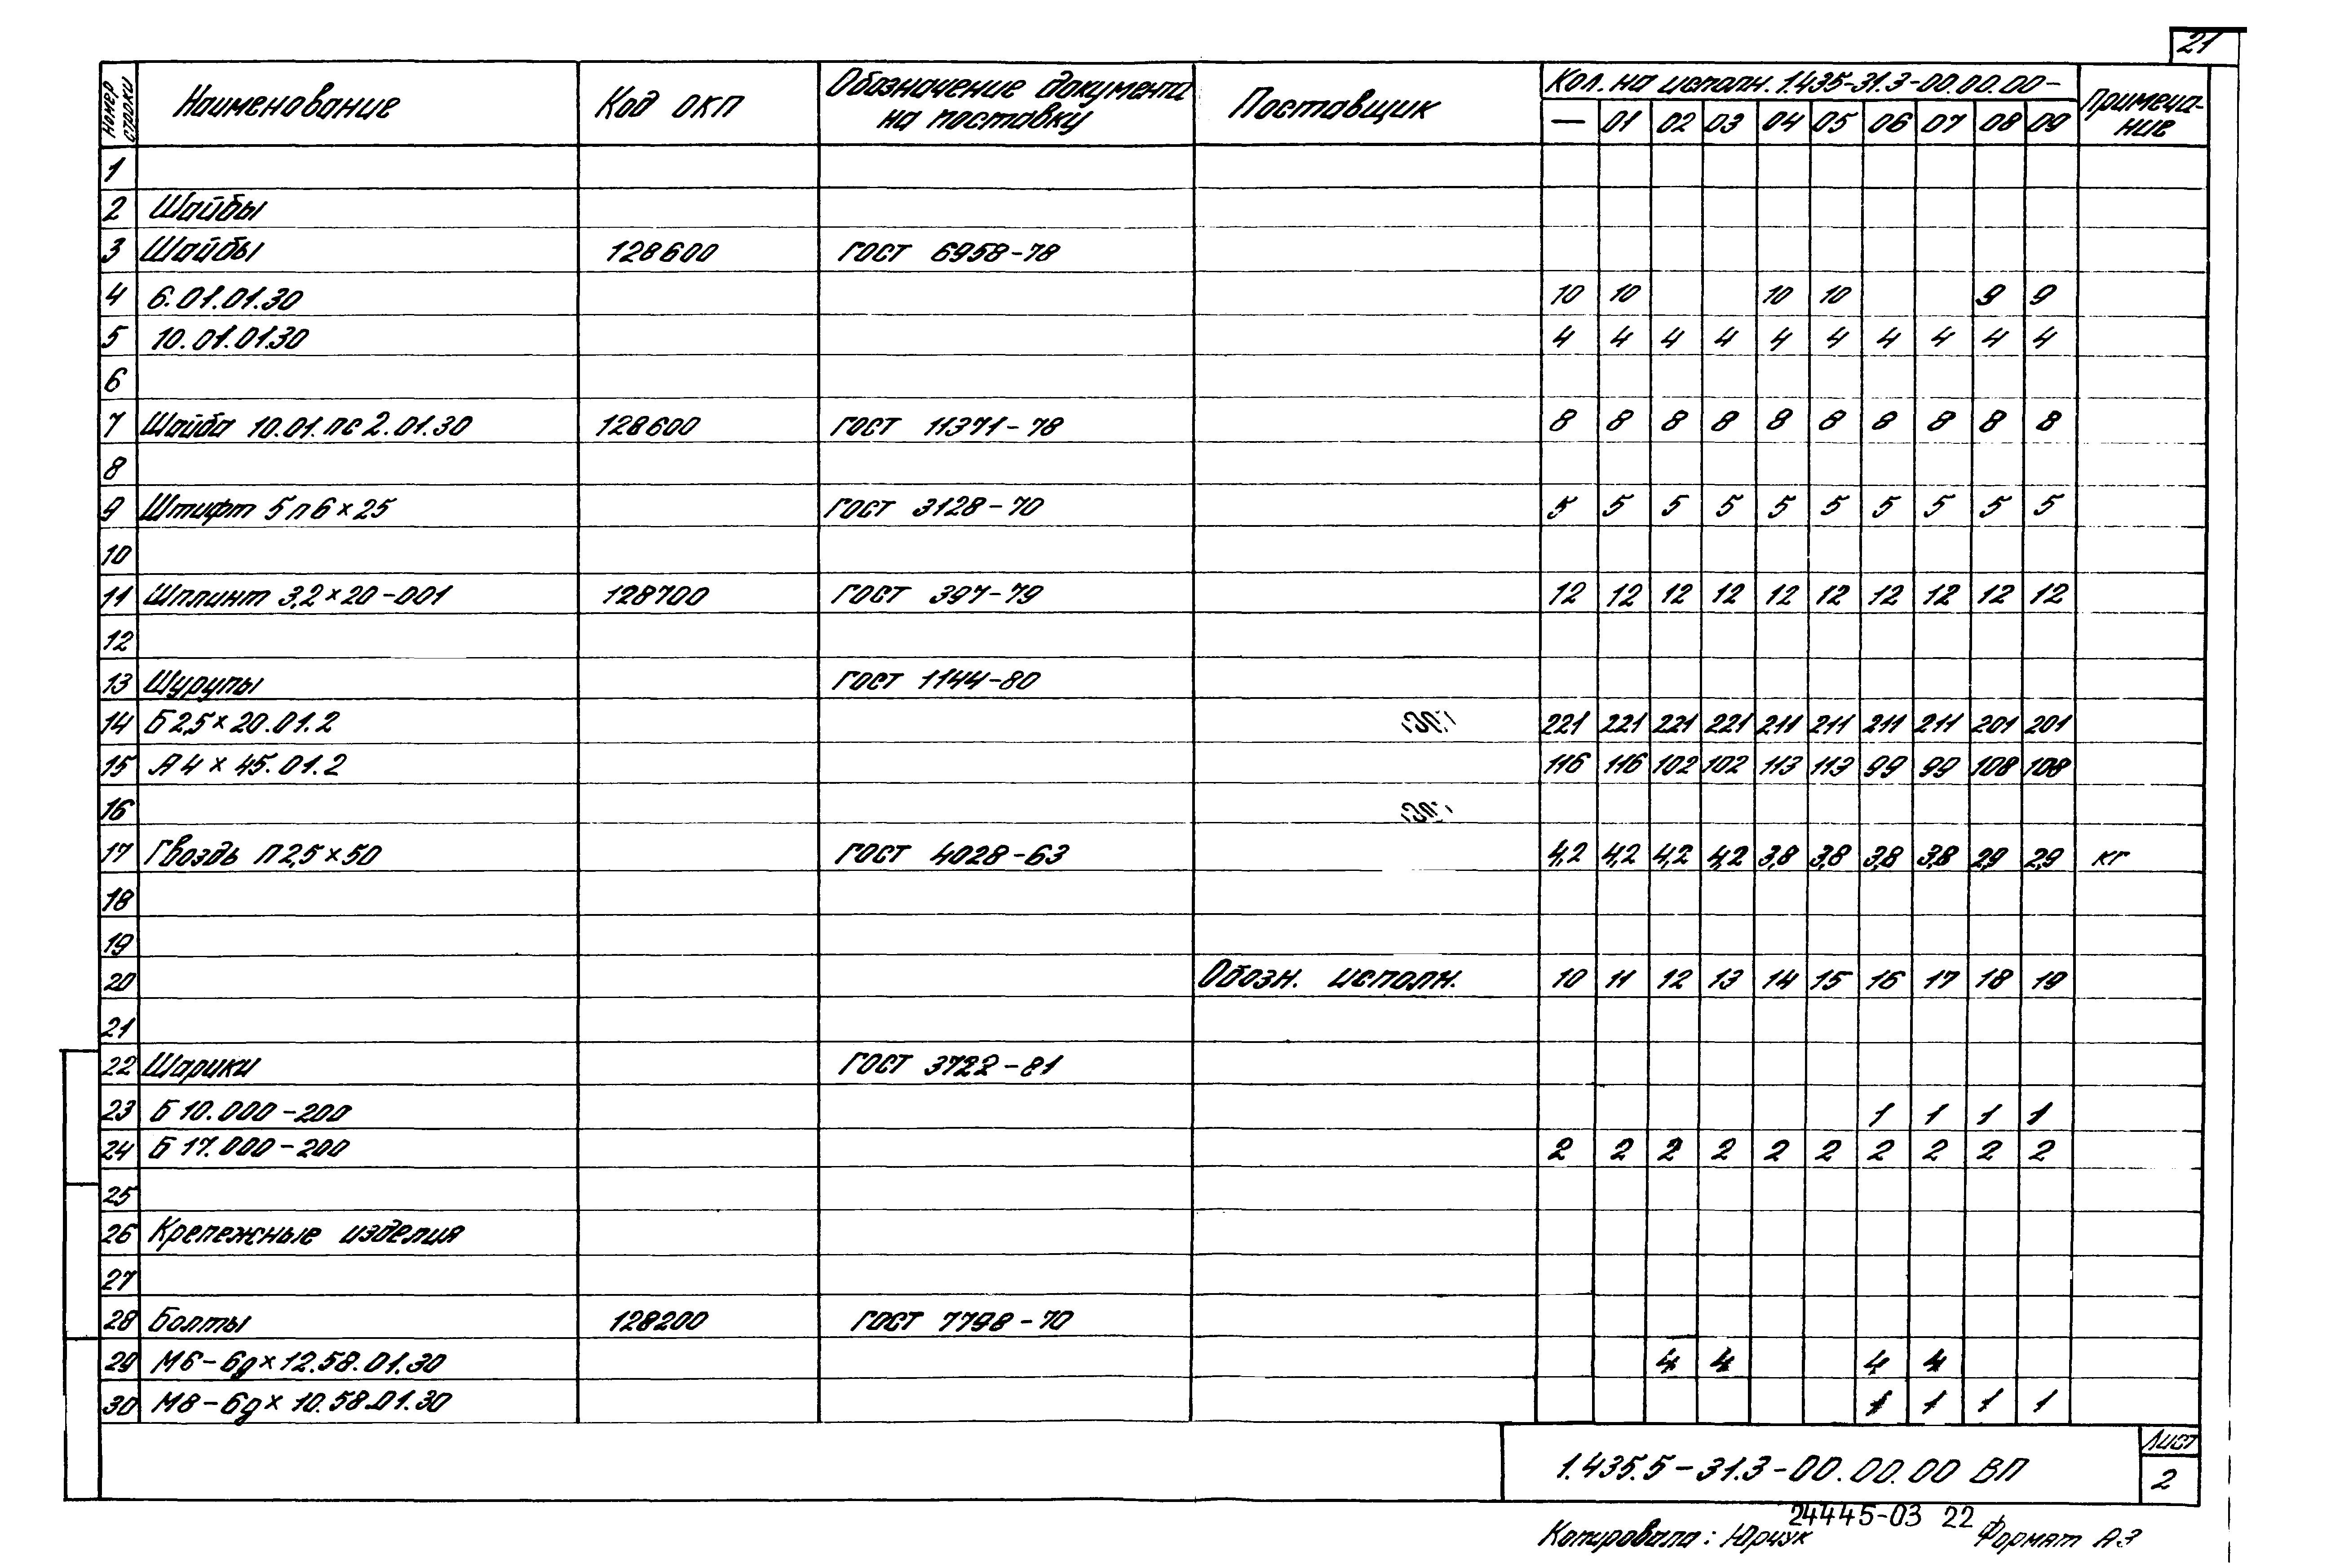 21
Номер строки | Наименование | Код ОКП | Обозначение документа на поставку | Поставщик | Кол. на исполн. 1.435-31.3-00.00.00- | Примеча-ние
— 01 02 03 04 05 06 07 08 09
1
2 Шайбы
3 Шайбы 128600 ГОСТ 6958-78
4 6.01.01.30 10 10 10 10 9 9
5 10.01.01.30 4 4 4 4 4 4 4 4 4 4
6
7 Шайба 10.01.пс 2.01.30 128600 ГОСТ 11371-78 8 8 8 8 8 8 8 8 8 8
8
9 Штифт 5п6×25 ГОСТ 3128-70 5 5 5 5 5 5 5 5 5 5
10
11 Шплинт 3,2×20-001 128700 ГОСТ 397-79 12 12 12 12 12 12 12 12 12 12
12
13 Шурупы ГОСТ 1144-80
14 Б2,5×20.01.2 221 221 221 221 211 211 211 211 201 201
15 А4×45.01.2 116 116 102 102 113 113 99 99 108 108
16
17 Гвоздь П2,5×50 ГОСТ 4028-63 4,2 4,2 4,2 4,2 3,8 3,8 3,8 3,8 2,9 2,9 кг
18
19
20 Обозн. исполн. 10 11 12 13 14 15 16 17 18 19
21
22 Шарики ГОСТ 3722-81
23 Б 10.000-200 1 1 1 1
24 Б 17.000-200 2 2 2 2 2 2 2 2 2 2
25
26 Крепежные изделия
27
28 Болты 128200 ГОСТ 7798-70
29 М6-6g×12.58.01.30 4 4 4 4
30 М8-6g×10.58.01.30 1 1 1 1
1.435.5-31.3-00.00.00 ВП
Лист
2
24445-03 22
Копировала: Юрчук Формат А3